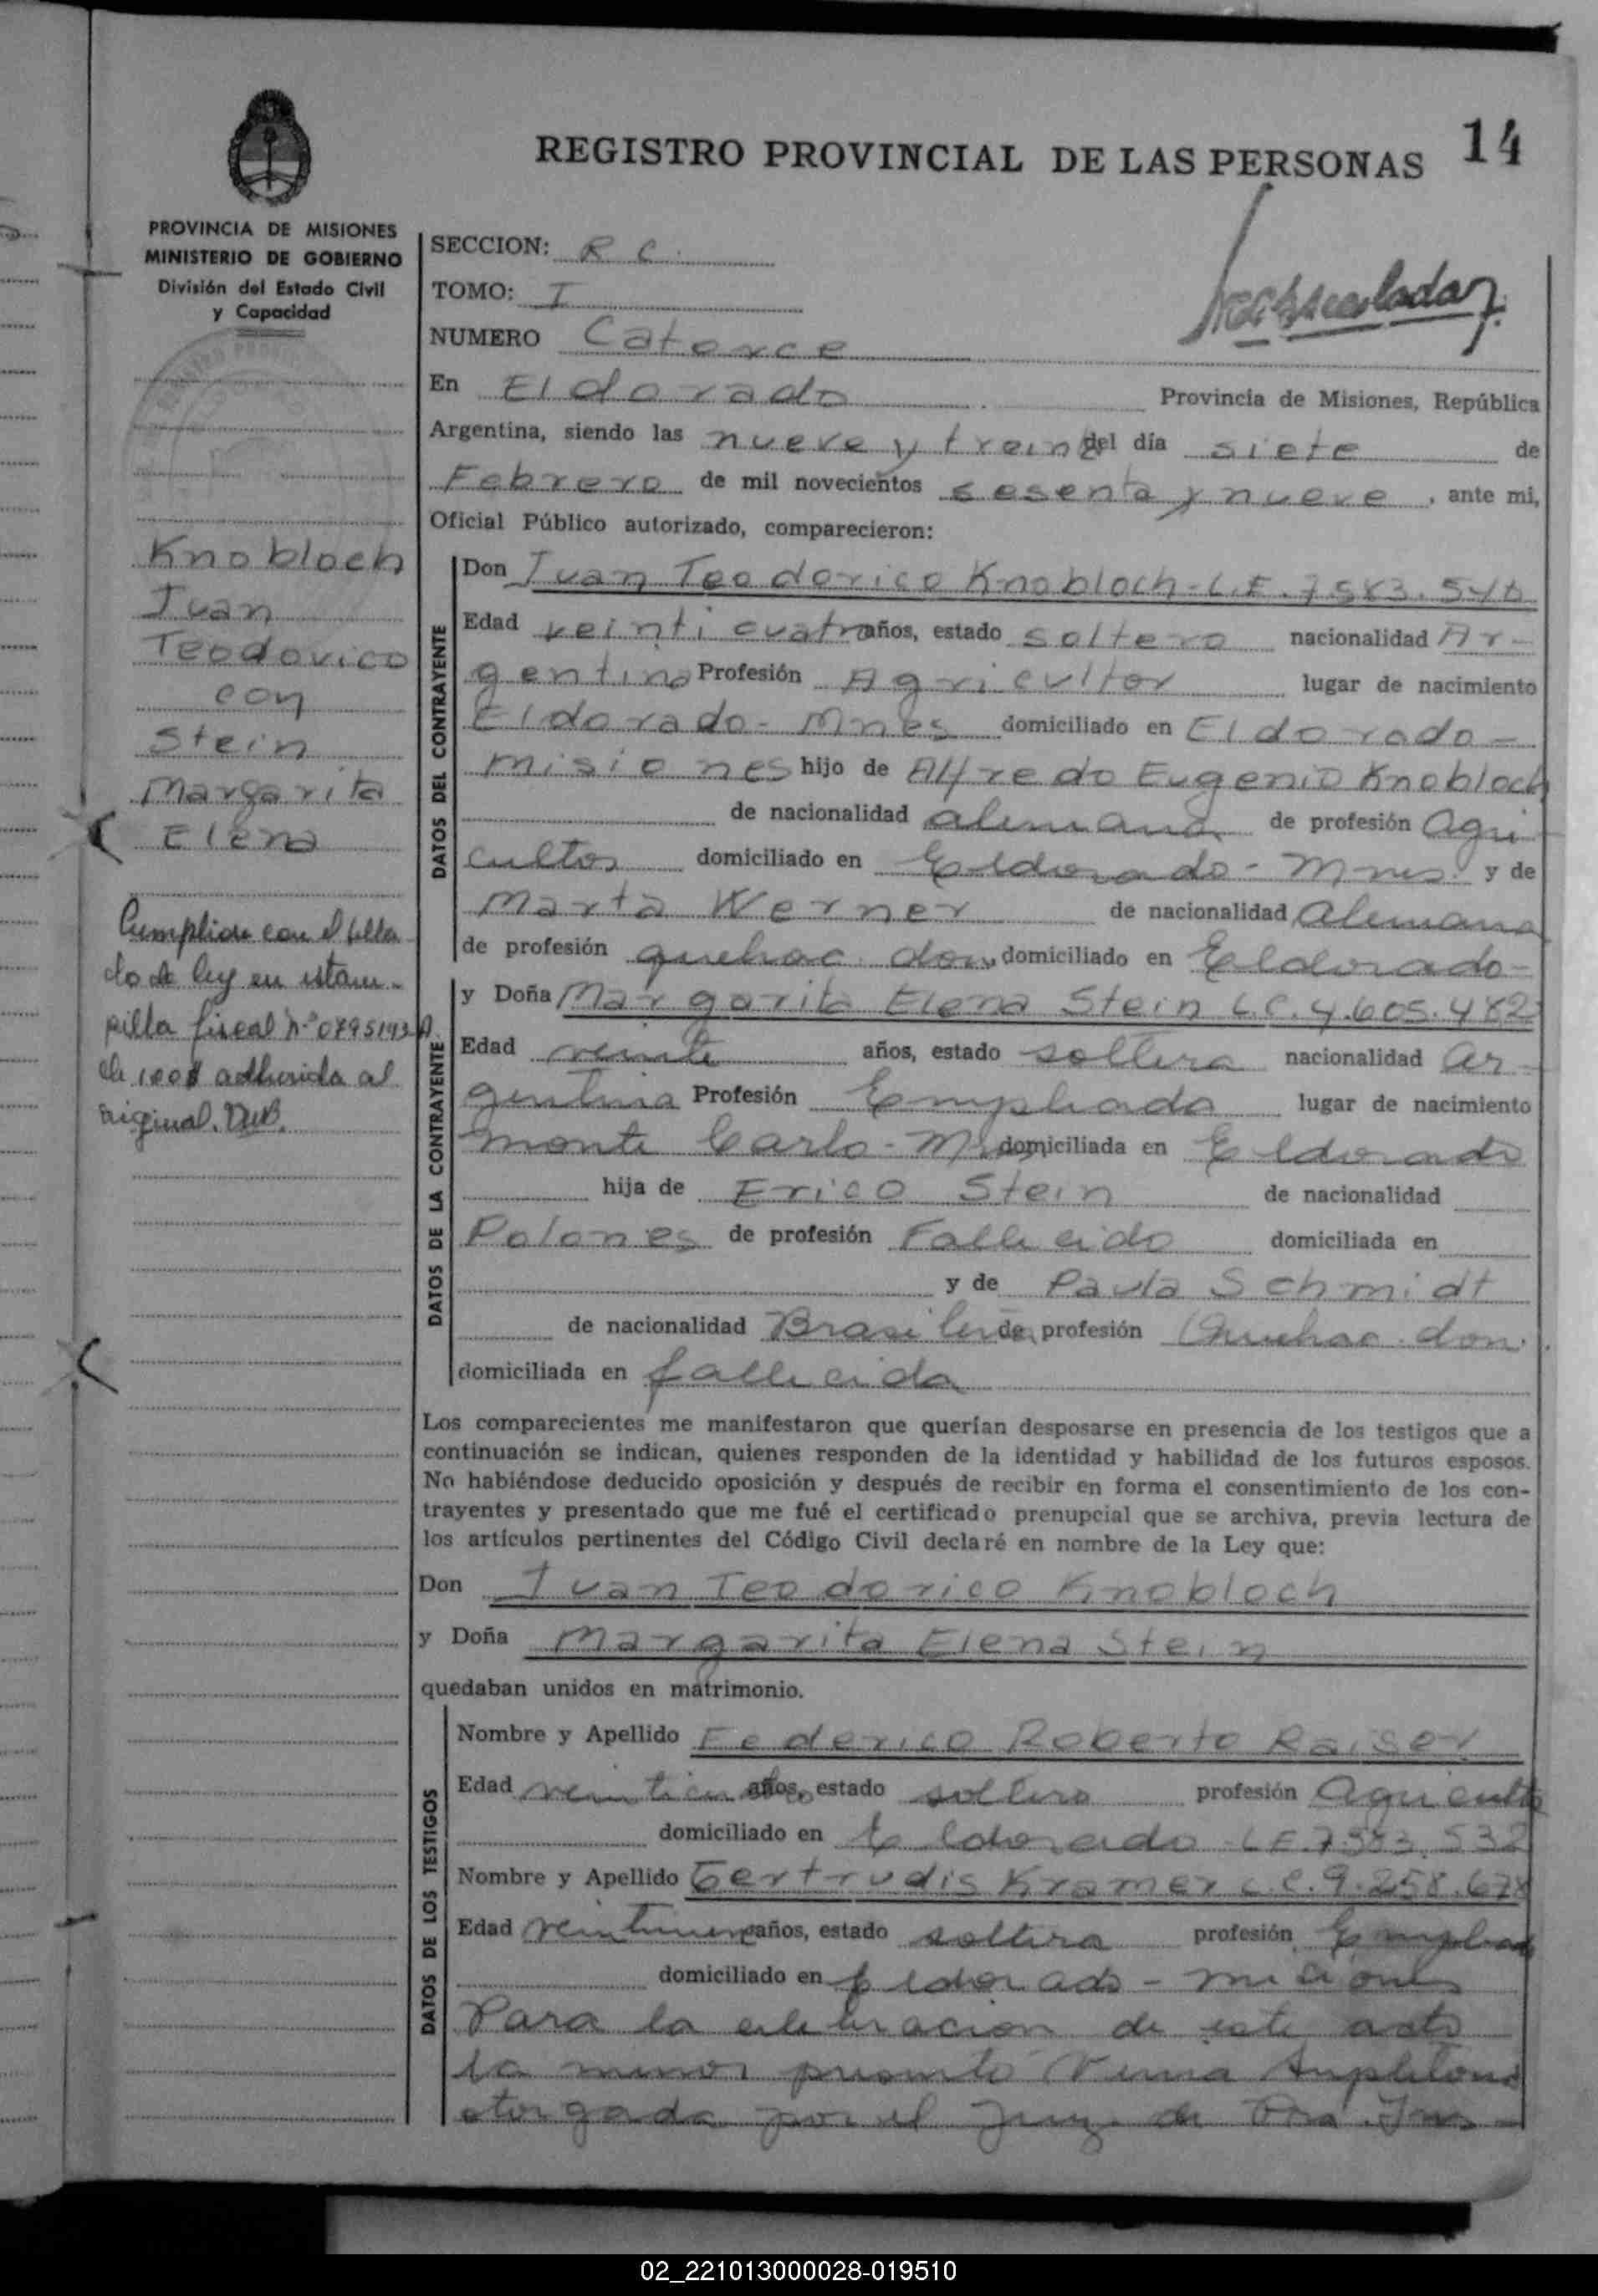 REGISTRO PROVINCIAL DE LAS PERSONAS 14
PROVINCIA DE MISIONES
MINISTERIO DE GOBIERNO
División del Estado Civil
y Capacidad
Knobloch
Juan
Teodorico
con
Stein
Margarita
Elena
Cumplido con el sella
do de ley en estam-
pilla fiscal Nº 0795193 A
de 100$ adherida al
original.
SECCION: R C.
TOMO: I
NUMERO Catorce
En Eldorado Provincia de Misiones, República
Argentina, siendo las nueve y treinta del día siete de
Febrero de mil novecientos sesenta y nueve, ante mi,
Oficial Público autorizado, comparecieron:
DATOS DEL CONTRAYENTE
Don Juan Teodorico Knobloch - L.E. 7.583.546
Edad veinti cuatro años, estado soltero nacionalidad Ar-
gentino Profesión Agricultor lugar de nacimiento
Eldorado - Mnes domiciliado en Eldorado -
Misiones hijo de Alfredo Eugenio Knobloch
de nacionalidad alemana de profesión Agri
cultor domiciliado en Eldorado - Mnes. y de
Marta Werner de nacionalidad Alemana
de profesión quehac. dom. domiciliado en Eldorado -
DATOS DE LA CONTRAYENTE
y Doña Margarita Elena Stein L.C. 4.605.482
Edad veinte años, estado soltera nacionalidad Ar-
gentina Profesión Empleada lugar de nacimiento
Monte Carlo - Mnes domiciliada en Eldorado
hija de Erico Stein de nacionalidad
Polones de profesión Fallecido domiciliada en
y de Paula Schmidt
de nacionalidad Brasilera de profesión Quehac. dom.
domiciliada en fallecida
Los comparecientes me manifestaron que querían desposarse en presencia de los testigos que a
continuación se indican, quienes responden de la identidad y habilidad de los futuros esposos.
No habiéndose deducido oposición y después de recibir en forma el consentimiento de los con-
trayentes y presentado que me fué el certificado prenupcial que se archiva, previa lectura de
los artículos pertinentes del Código Civil declaré en nombre de la Ley que:
Don Juan Teodorico Knobloch
y Doña Margarita Elena Stein
quedaban unidos en matrimonio.
DATOS DE LOS TESTIGOS
Nombre y Apellido Federico Roberto Raiser
Edad veinticuatro años, estado soltero profesión Agricultor
domiciliado en Eldorado - L.E. 7.583.532
Nombre y Apellido Gertrudis Kramer L.C. 9.258.678
Edad veintinueve años, estado soltera profesión Empleada
domiciliado en Eldorado - Misiones
Para la celebración de este acto
la menor presentó Venia Supletoria
otorgada por el Juez de Pra. Ins-
02_221013000028-019510